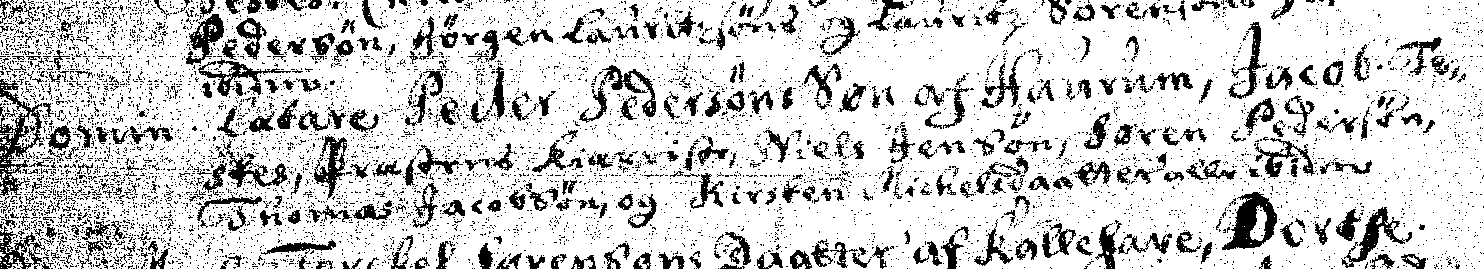 Pedersön, Jörgen Lauritzsöns og Lauritz Sörensöns
ibidm.
Domin. Lætare Peder Pedersöns Søn af Haurum, Jacob. Te,,
stes, Præstens Niels Jensön, Søren Pedersøn,
Thomas Jacobsön, og Kirsten Michelsdaatter alle ibidm
Torchel Sørensøns Daatter af Kallehave, Dorthe.